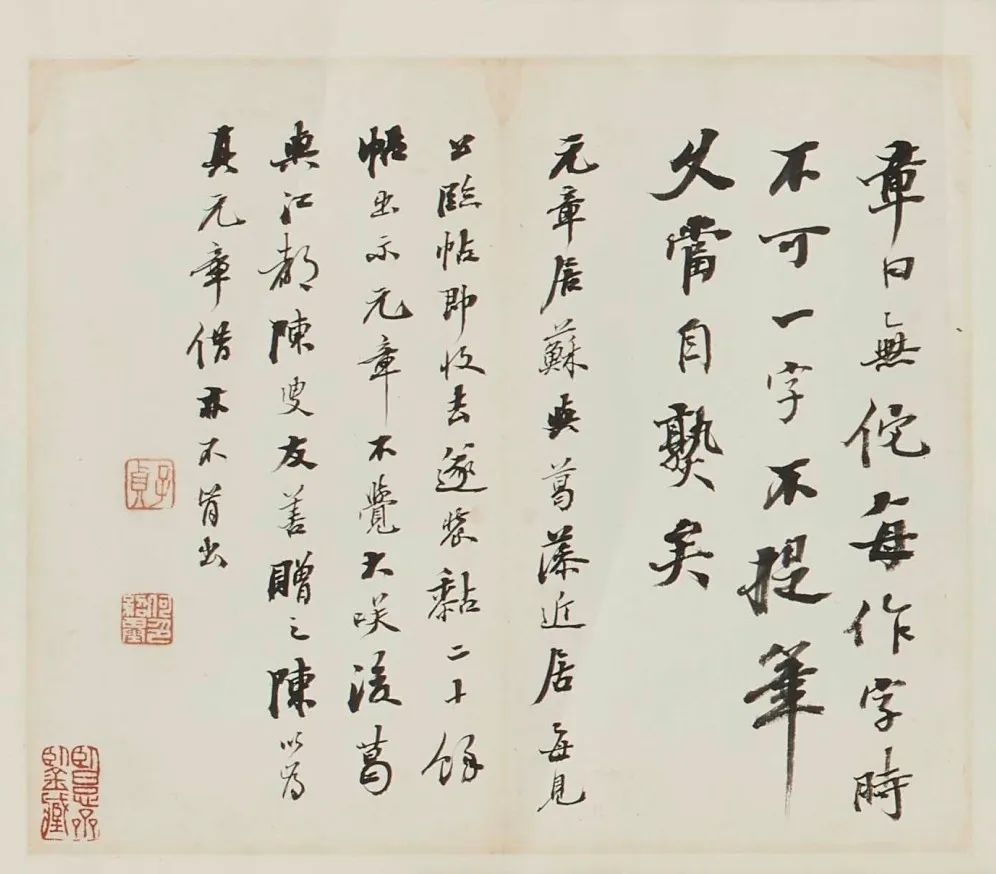 章曰無佗每作字時
不可一字不提筆
久當自熟矣
元章居蘇與葛藻近居每見
公臨帖即收去遂裝黏二十餘
帖出示元章不覺大咲後葛
與江都陳叟友善贈之陳以為
真元章借亦不肯出
子貞
何紹基印